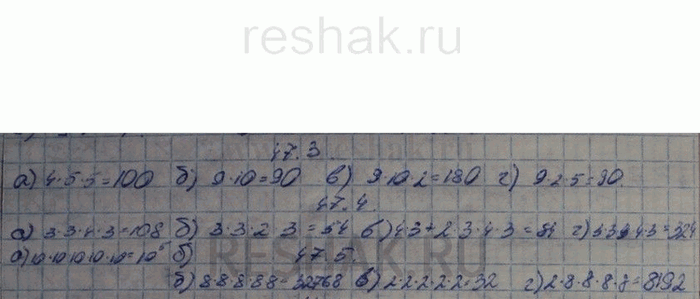 reshak.ru
47.3
а) 4·5·5=100 б) 9·10=90 в) 9·10·2=180 г) 9·2·5=90.
47.4
а) 3·3·4·3=108 б) 3·3·2·3=54 в) 4·3+2·3·4·3=84 г) 3·3·9·4·3=324
а) 10·10·10·10·10=10⁵ б) 47.5.
б) 8·8·8·8·8=32768 в) 2·2·2·2·2=32 г) 2·8·8·8·8=8192
RESHAK.RU